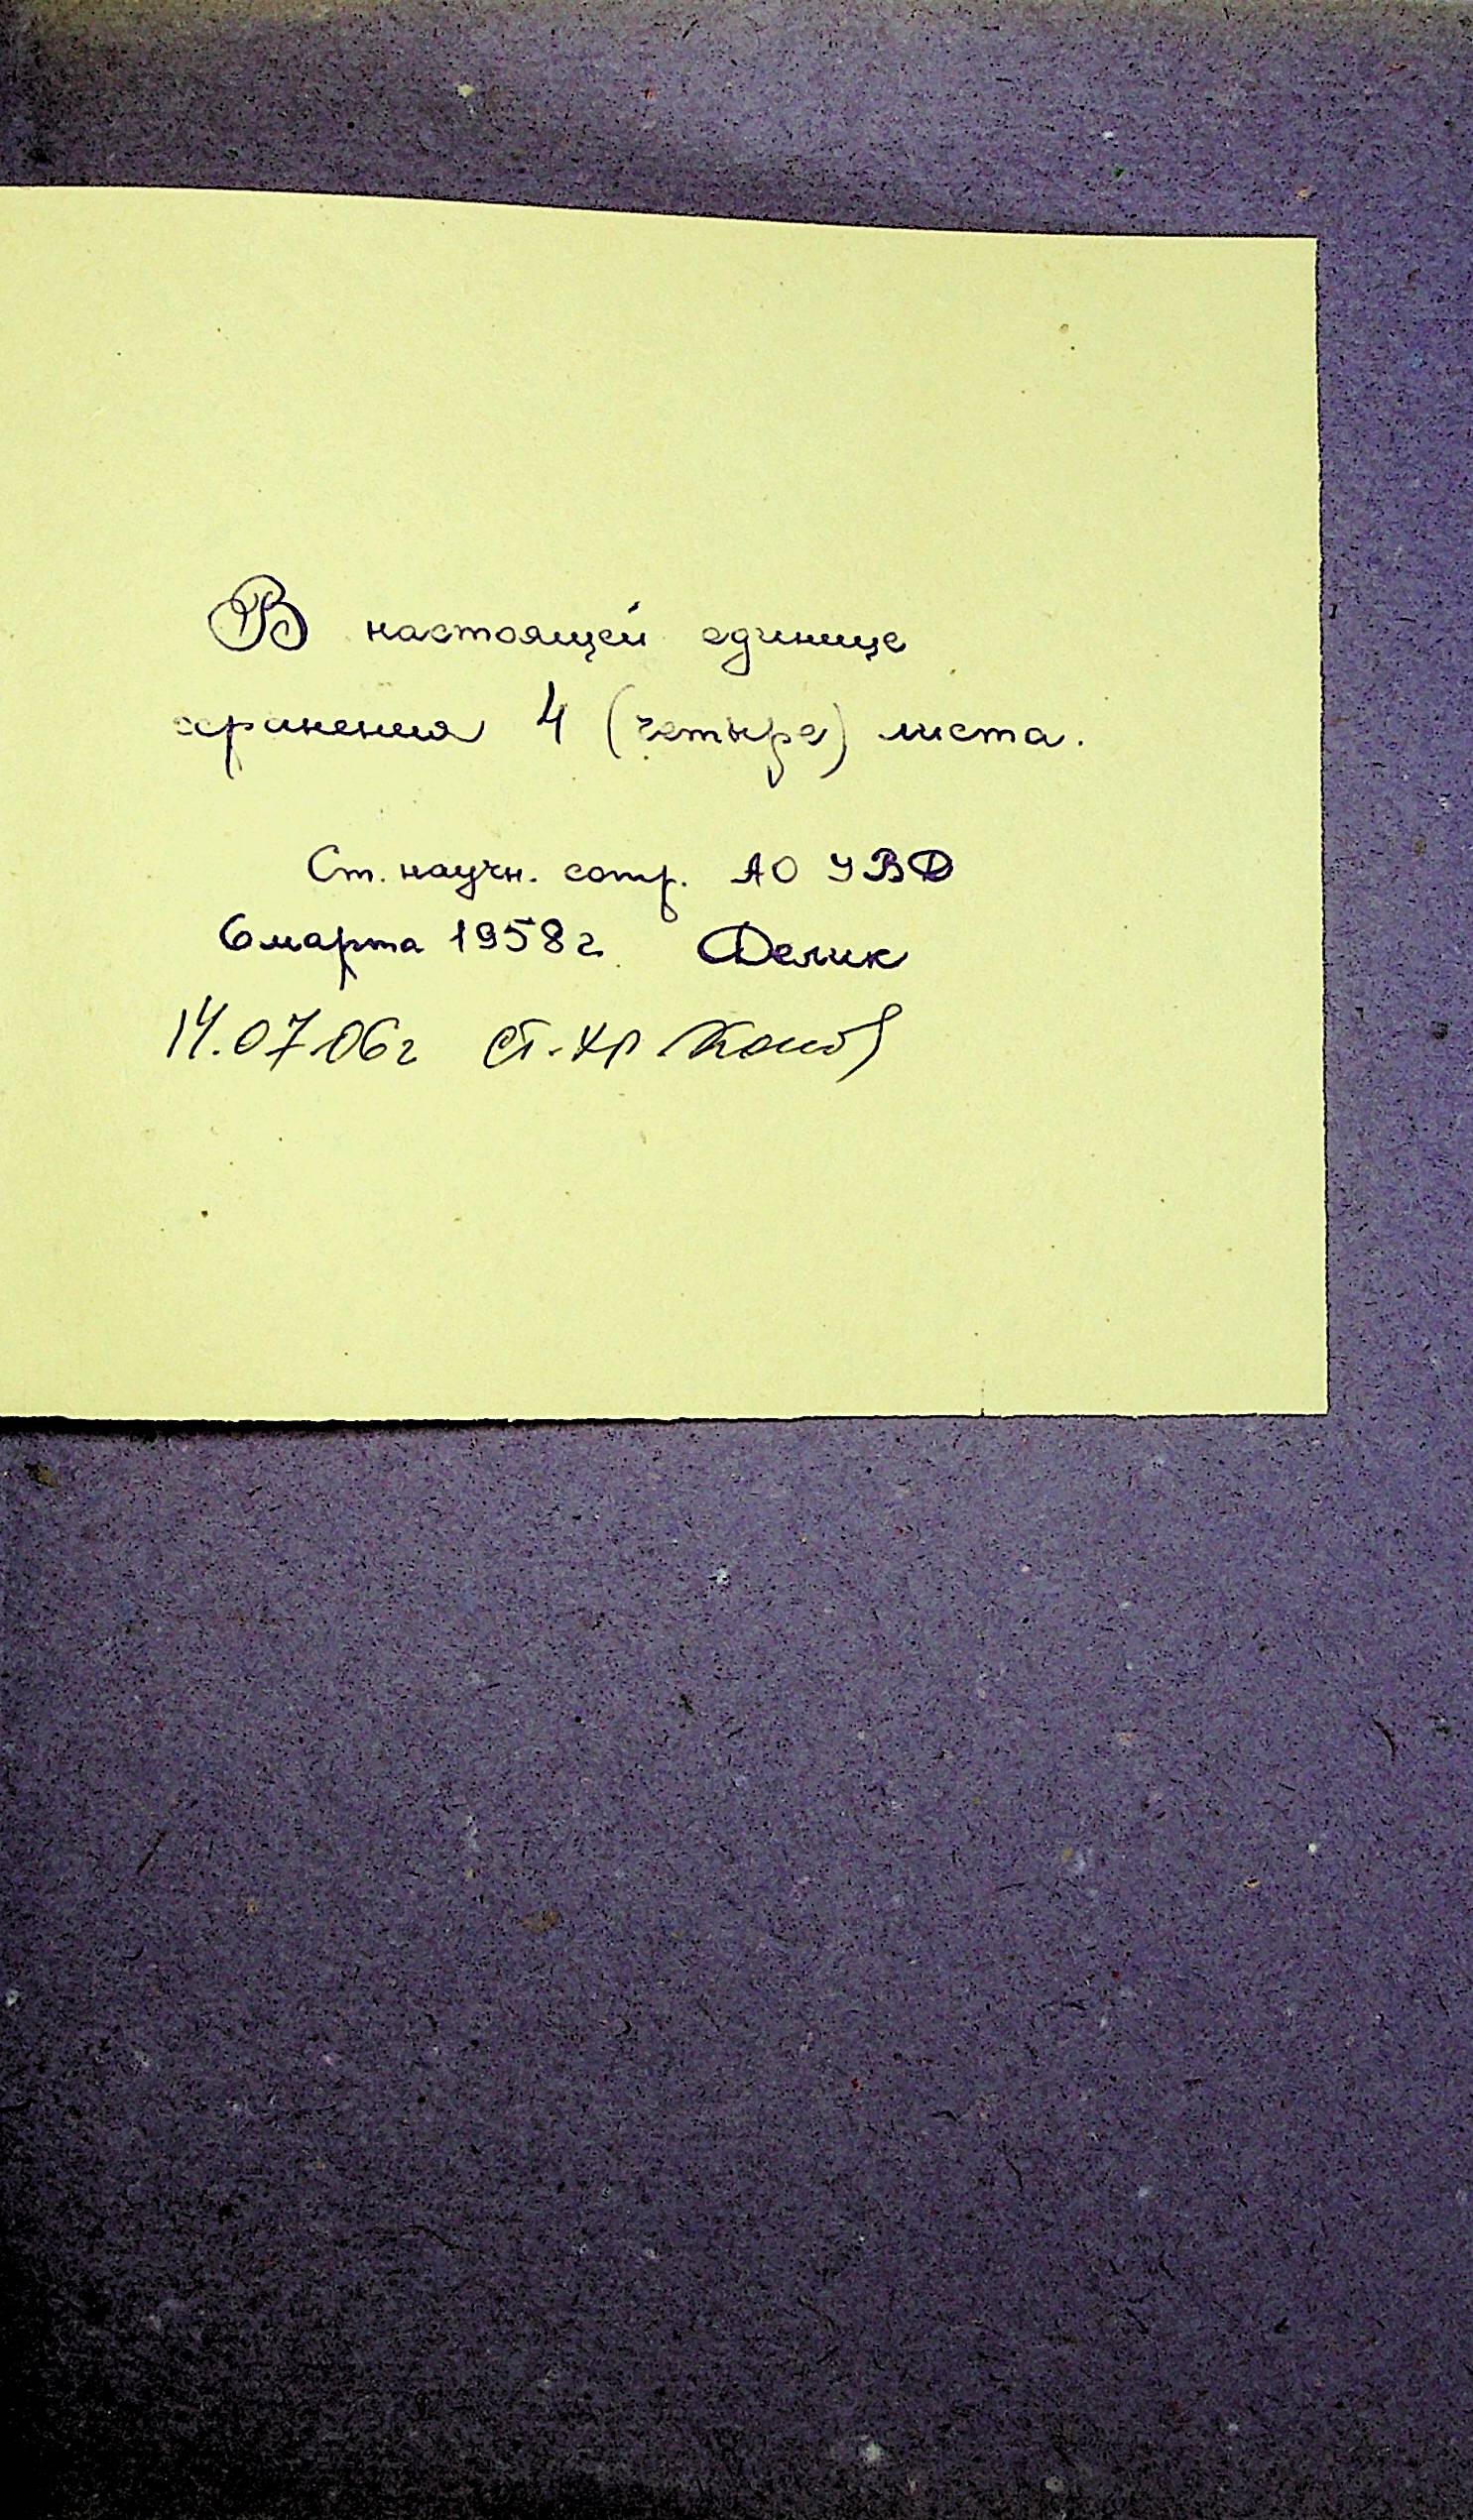 В настоящей единице
хранения 4 (четыре) листа.
Ст. научн. сотр. АО УВД
6 марта 1958 г. Делик
14.07.06 г ст. хр